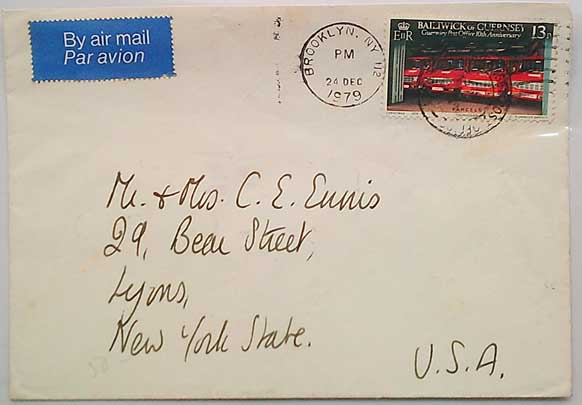 By air mail
Par avion
BROOKLYN, NY 112
PM
24 DEC
1979
BAILIWICK OF GUERNSEY
Guernsey Post Office 10th Anniversary
EIIR
13p
PARCELS
Mr. & Mrs. C. E. Ennis
29, Beau Street,
Lyons,
New York State.
U.S.A.